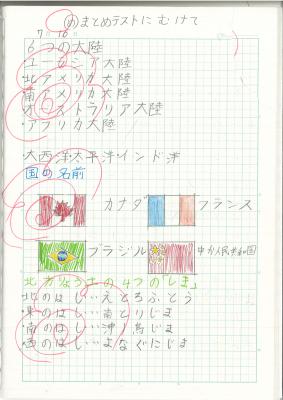 めまとめテストにむけて
7 16
6つの大陸
ユーラシア大陸
・北アメリカ大陸
・南アメリカ大陸
・オーストラリア大陸
・アフリカ大陸
・大西洋太平洋インド洋
国の名前
カナダ フランス
ブラジル 中か人民共和国
北方りょう土の4つの「しま」
・北のはし…えとろふとう
・東のはし…南とりしま
・南のはし…沖ノ鳥じま
・西のはし…よなぐにじま